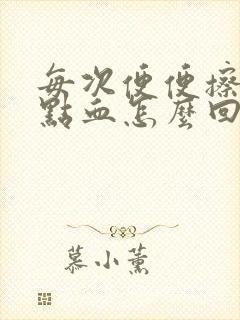 每次便便擦
點血怎麼回
慕小薰